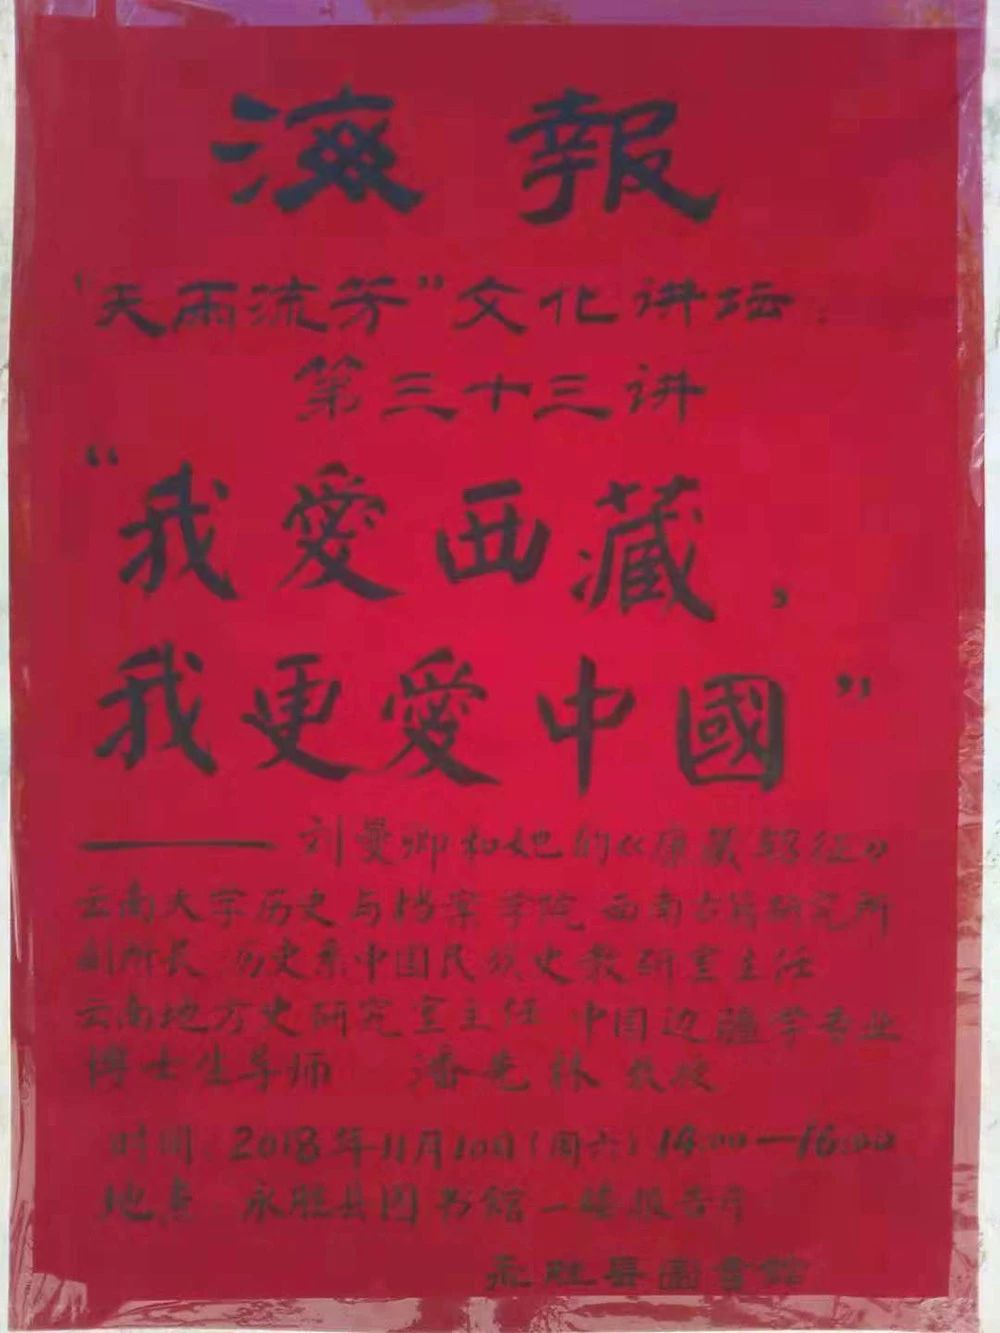 海報
“天雨流芳”文化讲坛:
第三十三讲
“我愛西藏,
我更愛中國”
——刘曼卿和她的《康藏轺征》
云南大学历史与档案学院 西南古籍研究所
副所长 历史系中国民族史教研室主任
云南地方史研究室主任 中国边疆学专业
博士生导师 潘先林 教授
时间:2018年11月10日(周六)14:00—16:00
地点 永胜县图书馆一楼报告厅
永胜县圖書館